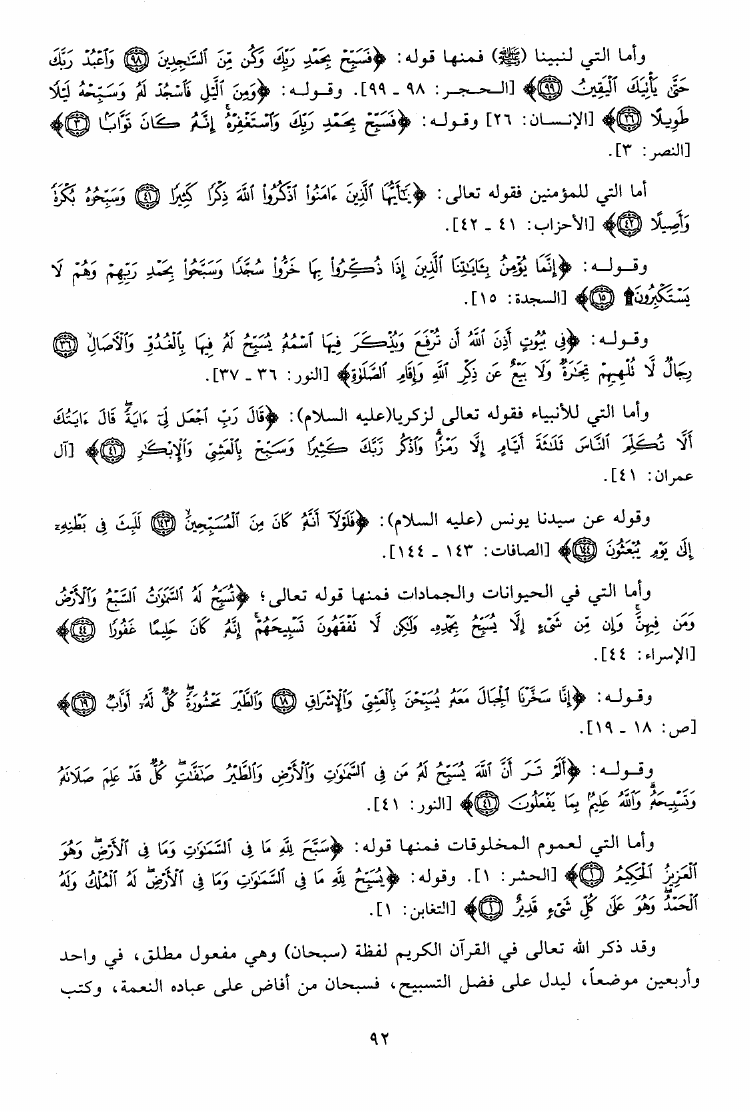 وأما التي لنبينا (ﷺ) فمنها قوله: ﴿فَسَبِّحْ بِحَمْدِ رَبِّكَ وَكُن مِّنَ ٱلسَّٰجِدِينَ ﴿٩٨﴾ وَٱعْبُدْ رَبَّكَ
حَتَّىٰ يَأْتِيَكَ ٱلْيَقِينُ ﴿٩٩﴾﴾ [الـحـجـر: ٩٨ ـ ٩٩]. وقـولـه: ﴿وَمِنَ ٱلَّيْلِ فَٱسْجُدْ لَهُۥ وَسَبِّحْهُ لَيْلًا
طَوِيلًا ﴿٢٦﴾﴾ [الإنـسـان: ٢٦] وقوله: ﴿فَسَبِّحْ بِحَمْدِ رَبِّكَ وَٱسْتَغْفِرْهُ إِنَّهُۥ كَانَ تَوَّابًۢا ﴿٣﴾﴾
[النصر: ٣].
أما التي للمؤمنين فقوله تعالى: ﴿يَٰٓأَيُّهَا ٱلَّذِينَ ءَامَنُوا۟ ٱذْكُرُوا۟ ٱللَّهَ ذِكْرًا كَثِيرًا ﴿٤١﴾ وَسَبِّحُوهُ بُكْرَةً
وَأَصِيلًا ﴿٤٢﴾﴾ [الأحزاب: ٤١ ـ ٤٢].
وقـولـه: ﴿إِنَّمَا يُؤْمِنُ بِـَٔايَٰتِنَا ٱلَّذِينَ إِذَا ذُكِّرُوا۟ بِهَا خَرُّوا۟ سُجَّدًا وَسَبَّحُوا۟ بِحَمْدِ رَبِّهِمْ وَهُمْ لَا
يَسْتَكْبِرُونَ۩ ﴿١٥﴾﴾ [السجدة: ١٥].
وقـولـه: ﴿فِى بُيُوتٍ أَذِنَ ٱللَّهُ أَن تُرْفَعَ وَيُذْكَرَ فِيهَا ٱسْمُهُۥ يُسَبِّحُ لَهُۥ فِيهَا بِٱلْغُدُوِّ وَٱلْءَاصَالِ ﴿٣٦﴾
رِجَالٌ لَّا تُلْهِيهِمْ تِجَٰرَةٌ وَلَا بَيْعٌ عَن ذِكْرِ ٱللَّهِ وَإِقَامِ ٱلصَّلَوٰةِ﴾ [النور: ٣٦ ـ ٣٧].
وأما التي للأنبياء فقوله تعالى لزكريا(عليه السلام): ﴿قَالَ رَبِّ ٱجْعَل لِّىٓ ءَايَةً ۖ قَالَ ءَايَتُكَ
أَلَّا تُكَلِّمَ ٱلنَّاسَ ثَلَٰثَةَ أَيَّامٍ إِلَّا رَمْزًا ۗ وَٱذْكُر رَّبَّكَ كَثِيرًا وَسَبِّحْ بِٱلْعَشِىِّ وَٱلْإِبْكَٰرِ ﴿٤١﴾﴾ [آل
عمران: ٤١].
وقوله عن سيدنا يونس (عليه السلام): ﴿فَلَوْلَآ أَنَّهُۥ كَانَ مِنَ ٱلْمُسَبِّحِينَ ﴿١٤٣﴾ لَلَبِثَ فِى بَطْنِهِۦٓ
إِلَىٰ يَوْمِ يُبْعَثُونَ ﴿١٤٤﴾﴾ [الصافات: ١٤٣ ـ ١٤٤].
وأما التي في الحيوانات والجمادات فمنها قوله تعالى؛ ﴿تُسَبِّحُ لَهُ ٱلسَّمَٰوَٰتُ ٱلسَّبْعُ وَٱلْأَرْضُ
وَمَن فِيهِنَّ ۚ وَإِن مِّن شَىْءٍ إِلَّا يُسَبِّحُ بِحَمْدِهِۦ وَلَٰكِن لَّا تَفْقَهُونَ تَسْبِيحَهُمْ ۗ إِنَّهُۥ كَانَ حَلِيمًا غَفُورًا ﴿٤٤﴾﴾
[الإسراء: ٤٤].
وقـولـه: ﴿إِنَّا سَخَّرْنَا ٱلْجِبَالَ مَعَهُۥ يُسَبِّحْنَ بِٱلْعَشِىِّ وَٱلْإِشْرَاقِ ﴿١٨﴾ وَٱلطَّيْرَ مَحْشُورَةً ۖ كُلٌّ لَّهُۥٓ أَوَّابٌ ﴿١٩﴾﴾
[ص: ١٨ ـ ١٩].
وقـولـه: ﴿أَلَمْ تَرَ أَنَّ ٱللَّهَ يُسَبِّحُ لَهُۥ مَن فِى ٱلسَّمَٰوَٰتِ وَٱلْأَرْضِ وَٱلطَّيْرُ صَٰٓفَّٰتٍ ۖ كُلٌّ قَدْ عَلِمَ صَلَاتَهُۥ
وَتَسْبِيحَهُۥ ۗ وَٱللَّهُ عَلِيمٌۢ بِمَا يَفْعَلُونَ ﴿٤١﴾﴾ [النور: ٤١].
وأما التي لعموم المخلوقات فمنها قوله: ﴿سَبَّحَ لِلَّهِ مَا فِى ٱلسَّمَٰوَٰتِ وَمَا فِى ٱلْأَرْضِ ۖ وَهُوَ
ٱلْعَزِيزُ ٱلْحَكِيمُ ﴿١﴾﴾ [الحشر: ١]. وقوله: ﴿يُسَبِّحُ لِلَّهِ مَا فِى ٱلسَّمَٰوَٰتِ وَمَا فِى ٱلْأَرْضِ ۖ لَهُ ٱلْمُلْكُ وَلَهُ
ٱلْحَمْدُ ۖ وَهُوَ عَلَىٰ كُلِّ شَىْءٍ قَدِيرٌ ﴿١﴾﴾ [التغابن: ١].
وقد ذكر الله تعالى في القرآن الكريم لفظة (سبحان) وهي مفعول مطلق، في واحد
وأربعين موضعاً، ليدل على فضل التسبيح، فسبحان من أفاض على عباده النعمة، وكتب
٩٢